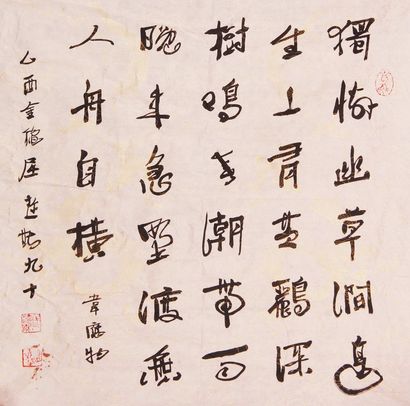 獨憐幽草澗邊
生上有黃鸝深
樹鳴春潮帶雨
晚來急野渡無
人舟自橫 韋應物
乙酉金秋 九十